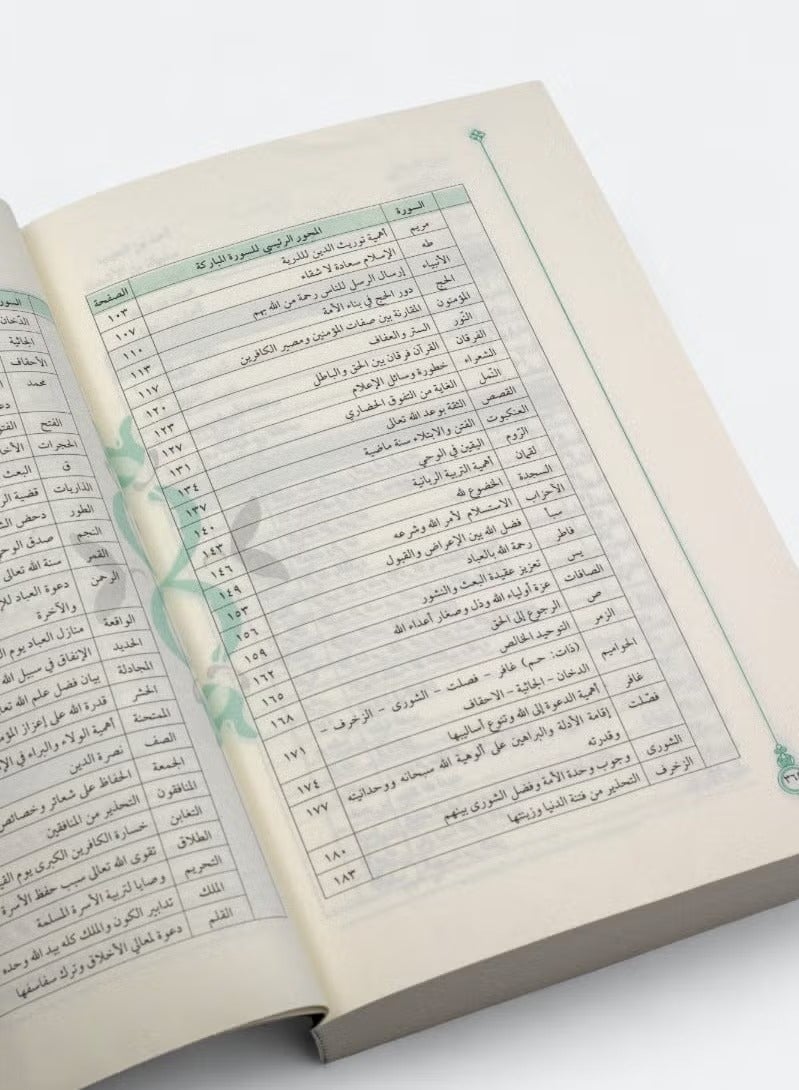 السورة المحور الرئيسي للسورة المباركة الصفحة
مريم أهمية توريث الدين للذرية ١٠٣
طه الإسلام سعادة لا شقاء ١٠٧
الأنبياء إرسال الرسل للناس رحمة من الله بهم ١١٠
الحج دور الحج في بناء الأمة ١١٣
المؤمنون المقارنة بين صفات المؤمنين ومصير الكافرين ١١٧
النور الستر والعفاف ١٢٠
الفرقان القرآن فرقان بين الحق والباطل ١٢٣
الشعراء خطورة وسائل الإعلام ١٢٧
النمل الغاية من التفوق الحضاري ١٣١
القصص الثقة بوعد الله تعالى ١٣٤
العنكبوت الفتن والابتلاء سنة ماضية ١٣٧
الروم اليقين في الوحي ١٤٠
لقمان أهمية التربية الربانية ١٤٣
السجدة الخضوع لله ١٤٦
الأحزاب الاستسلام لأمر الله وشرعه ١٤٩
سبأ فضل الله بين الإعراض والقبول ١٥٣
فاطر رحمة الله بالعباد ١٥٦
يس تعزيز عقيدة البعث والنشور ١٥٩
الصافات عزة أولياء الله وذل وصغار أعداء الله ١٦٢
ص الرجوع إلى الحق ١٦٥
الزمر التوحيد الخالص ١٦٨
الحواميم (ذات: حم) غافر - فصلت - الشورى - الزخرف -
الدخان - الجاثية - الأحقاف ١٧١
غافر أهمية الدعوة إلى الله وتنوع أساليبها ١٧٤
فصّلت إقامة الأدلة والبراهين على ألوهية الله سبحانه ووحدانيته
وقدرته ١٧٧
الشورى وجوب وحدة الأمة وفضل الشورى بينهم ١٨٠
الزخرف التحذير من فتنة الدنيا وزينتها ١٨٣
الدّخان
الجاثية
الأحقاف
محمد
الفتح
الحجرات
ق البعث
الذاريات قضية
الطور دحض
النجم صدق
القمر سنة الله تعالى
الرحمن دعوة العباد
والآخرة
الواقعة منازل العباد يوم
الحديد الإنفاق في سبيل الله
المجادلة بيان فضل علم الله
الحشر قدرة الله على إعزاز
الممتحنة أهمية الولاء والبراء في
الصف نصرة الدين
الجمعة الحفاظ على شعائر وخصائص
المنافقون التحذير من المنافقين
التغابن خسارة الكافرين الكبرى يوم
الطلاق تقوى الله تعالى سبب حفظ الأسرة
التحريم وصايا لتربية الأسرة المسلمة
الملك تدابير الكون والملك كله بيد الله وحده
القلم دعوة لمعالي الأخلاق وترك سفاسفها